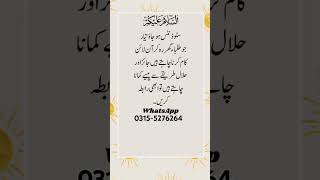 السلام علیکم
سٹوڈنٹس ہو جاؤ تیار
جو طلباء گھر رہ کر آن لائن
کام کرنا چاہتے ہیں جائز اور
حلال طریقے سے پیسے کمانا
چاہتے ہیں تو ابھی رابطہ
کریں۔
WhatsApp
0315-5276264